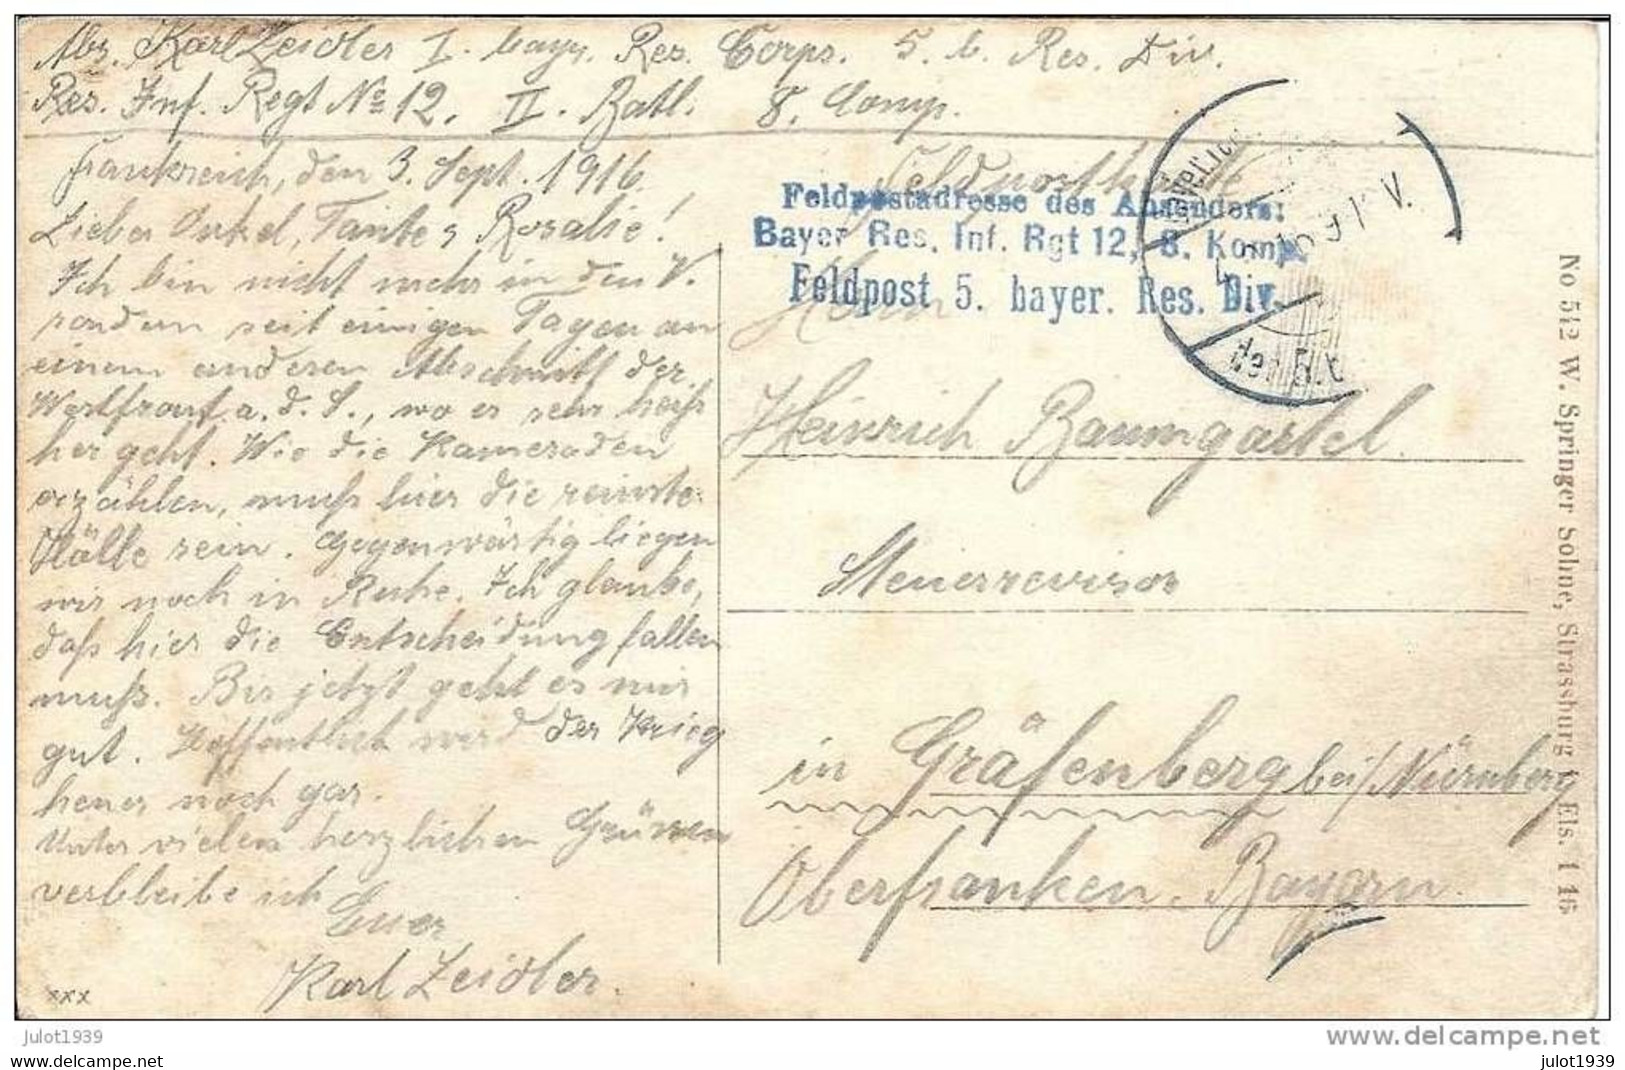 Abs. Karl Zeidler I. bayr. Res. Corps. 5. b. Res. Div.
Res. Inf. Regt No 12. II. Batl. 8. Comp.
Frankreich, den 3. Sept. 1916.
Lieber Onkel, Tante & Rosalie!
Ich bin nicht mehr in den V.
sondern seit einigen Tagen an
einem anderen Abschnitt der
Westfront a. d. S., wo es sehr heiß
her geht. Wie die Kameraden
erzählen, muß hier die reinste
Hölle sein. Gegenwärtig liegen
wir noch in Ruhe. Ich glaube,
daß hier die Entscheidung fallen
muß. Bis jetzt geht es mir
gut. Hoffentlich wird der Krieg
heuer noch gar.
Unter vielen herzlichen Grüssen
verbleibe ich
Euer
Karl Zeidler.
xxx
Feldpostadresse des Absenders:
Bayer Res. Inf. Rgt 12, 8. Komp.
Feldpost 5. bayer. Res. Div.
der 5. b
Herrn
Heinrich Baumgärtel.
Steuerrevisor
in Gräfenberg bei/Nürnberg
Oberfranken. Bayern.
No 512 W. Springer Söhne, Strassburg i. Els. 1 16
julot1939
www.delcampe.net
julot1939